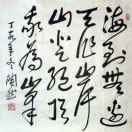 海到無邊天
岸山登絕頂
我為峰
丁亥年冬